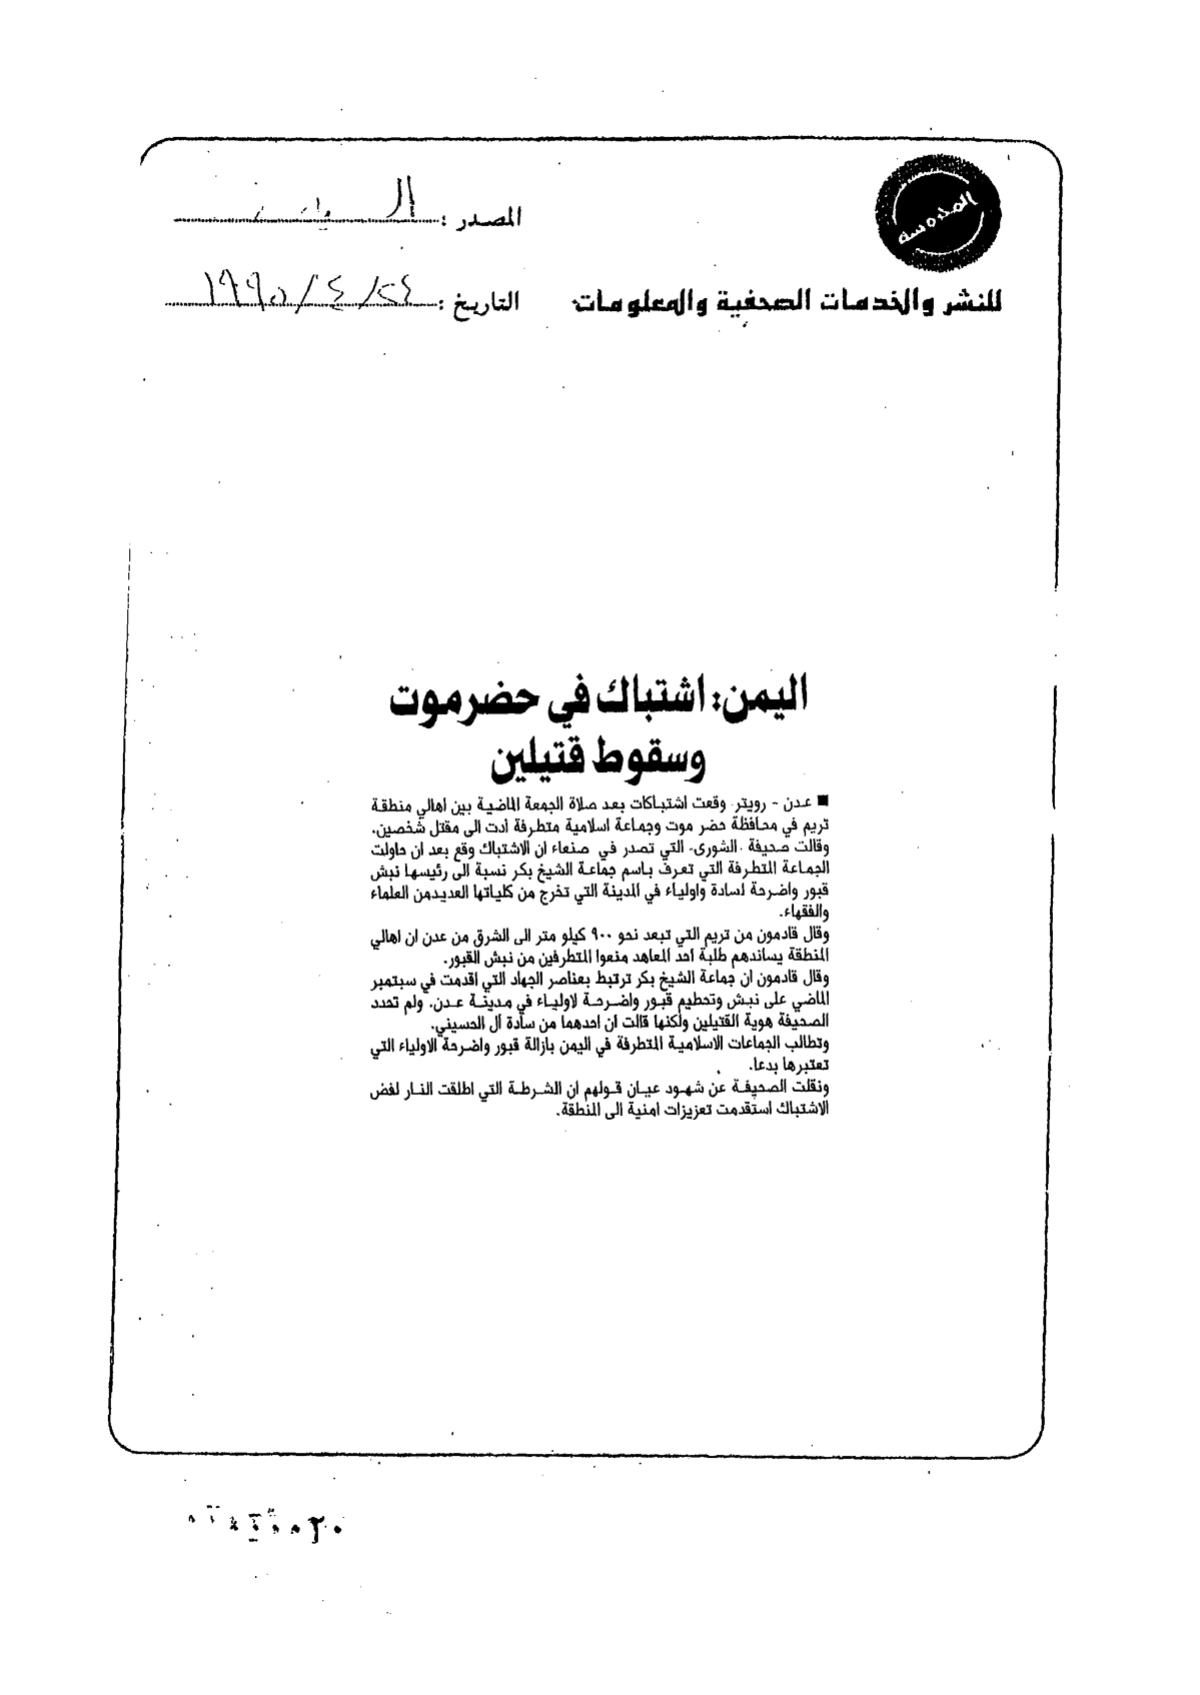 المحروسة
المصدر :
للنشر والخدمات الصحفية والمعلومات
التاريخ : ٢٤/ ٤ / ١٩٩٥
اليمن: اشتباك في حضرموت
وسقوط قتيلين
■ عدن - رويتر. وقعت اشتباكات بعد صلاة الجمعة الماضية بين اهالي منطقة
تريم في محافظة حضر موت وجماعة اسلامية متطرفة أدت الى مقتل شخصين.
وقالت صحيفة -الشورى- التي تصدر في صنعاء ان الاشتباك وقع بعد ان حاولت
الجماعة المتطرفة التي تعرف باسم جماعة الشيخ بكر نسبة الى رئيسها نبش
قبور واضرحة لسادة واولياء في المدينة التي تخرج من كلياتها العديدمن العلماء
والفقهاء.
وقال قادمون من تريم التي تبعد نحو ٩٠٠ كيلو متر الى الشرق من عدن ان اهالي
المنطقة يساندهم طلبة احد المعاهد منعوا المتطرفين من نبش القبور.
وقال قادمون ان جماعة الشيخ بكر ترتبط بعناصر الجهاد التي اقدمت في سبتمبر
الماضي على نبش وتحطيم قبور واضرحة لاولياء في مدينة عدن. ولم تحدد
الصحيفة هوية القتيلين ولكنها قالت ان احدهما من سادة آل الحسيني.
وتطالب الجماعات الاسلامية المتطرفة في اليمن بازالة قبور واضرحة الاولياء التي
تعتبرها بدعا.
ونقلت الصحيفة عن شهود عيان قولهم ان الشرطة التي اطلقت النار لفض
الاشتباك استقدمت تعزيزات امنية الى المنطقة.